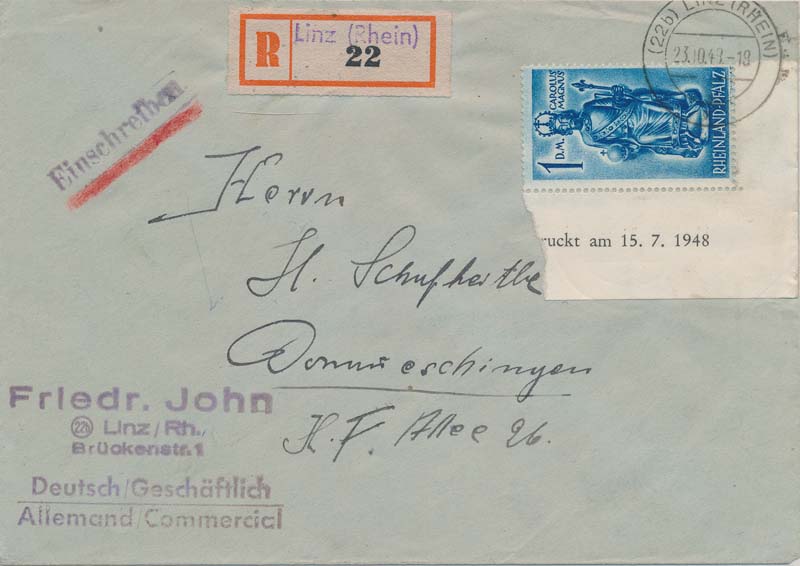 R Linz (Rhein)
22
(22b) LINZ (RHEIN)
23.10.48.-18
Einschreiben
1 D.M.
CAROLUS MAGNUS
RHEINLAND-PFALZ
ruckt am 15. 7. 1948
Herrn
H.
Donaueschingen
H. F. Allee 26.
Friedr. John
22b Linz/Rh.,
Brückenstr. 1
Deutsch/Geschäftlich
Allemand/Commercial